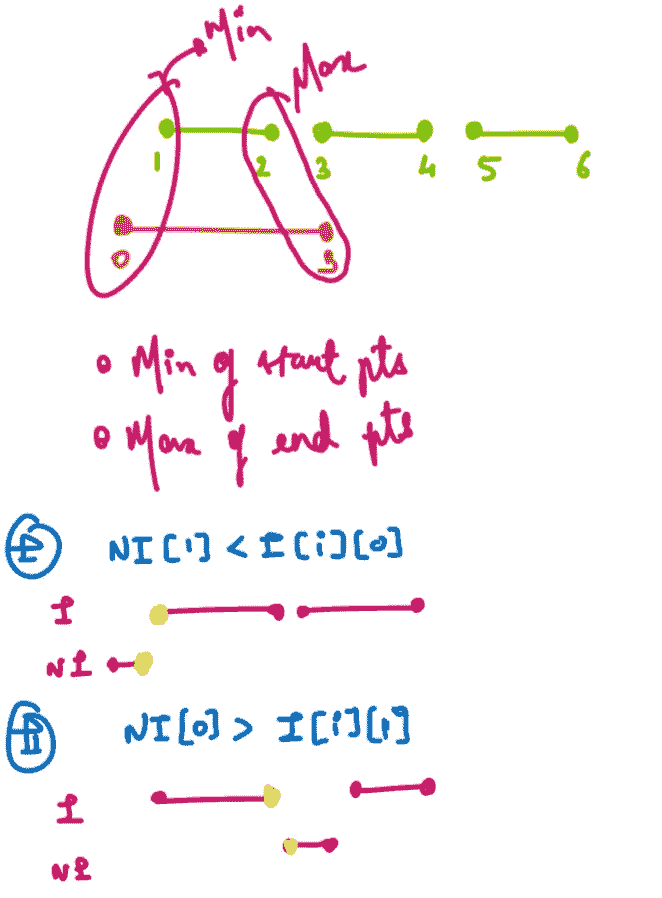 Min
Max
1 2 3 4 5 6
0 3
Min of start pts
Max of end pts
I NI[1] < I[i][0]
I
NI
II NI[0] > I[i][1]
I
NI